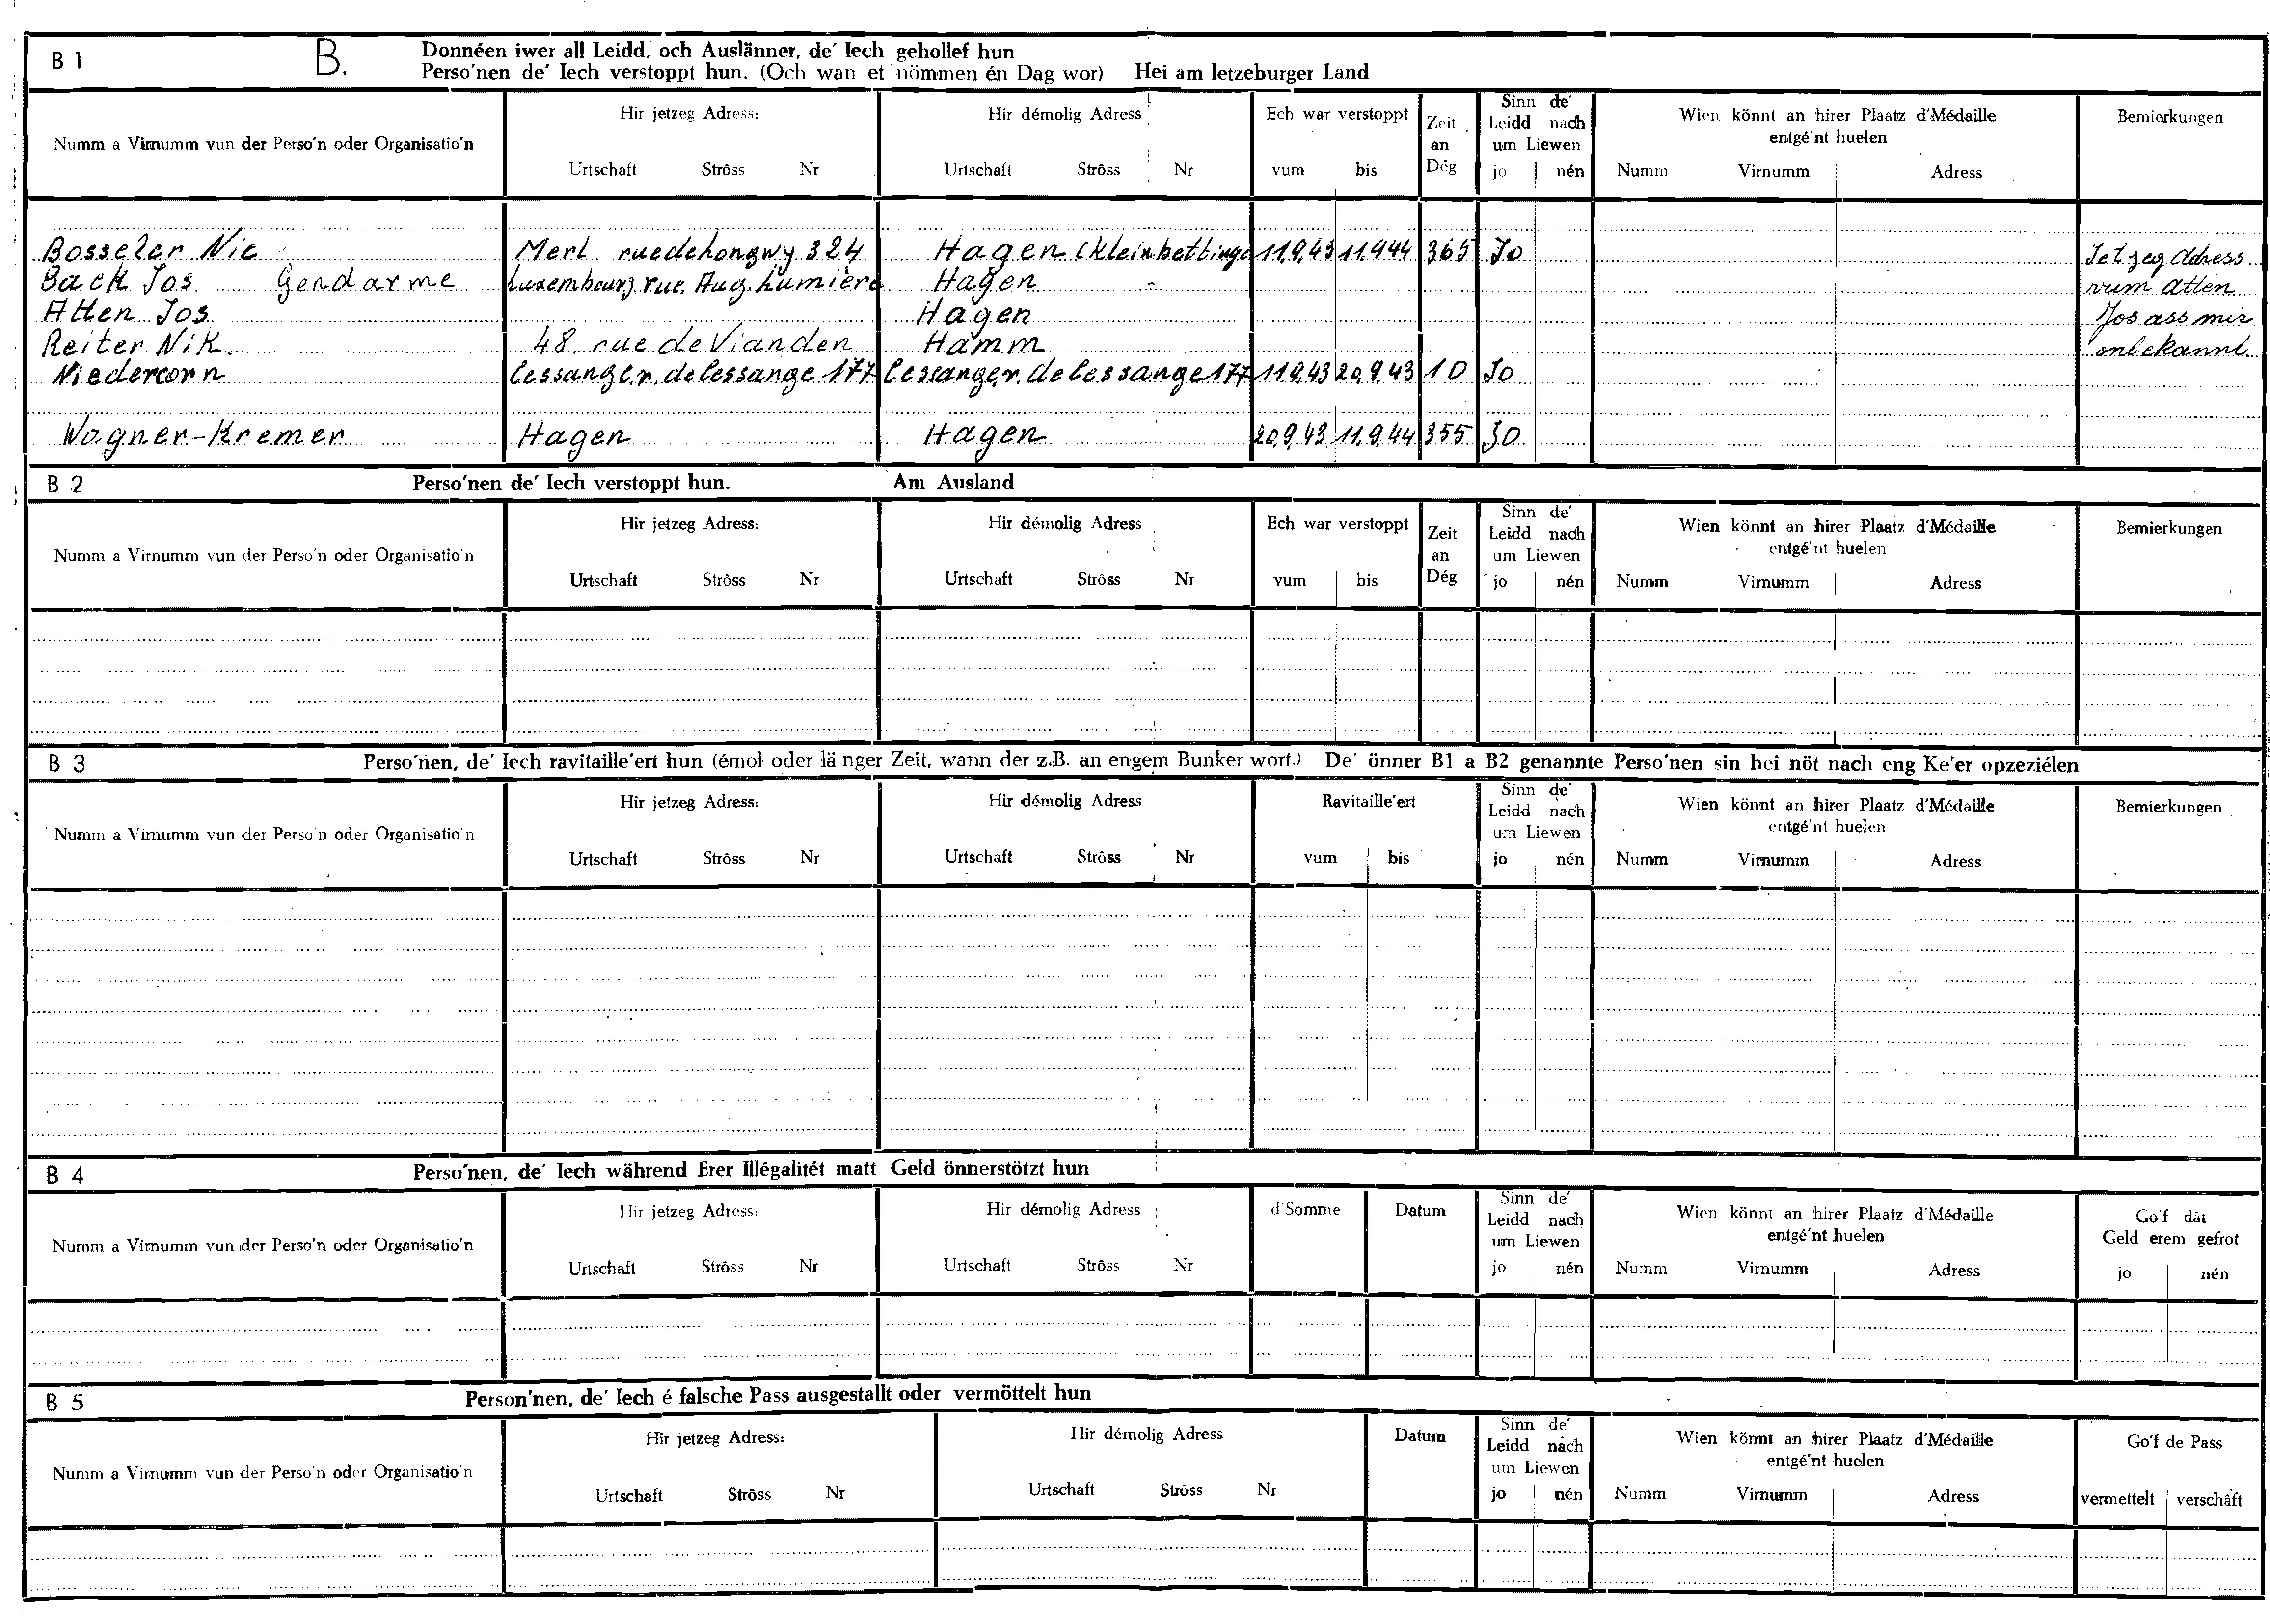 B 1 B. Donnéen iwer all Leidd, och Auslänner, de' Iech gehollef hun
Perso'nen de' Iech verstoppt hun. (Och wan et nömmen én Dag wor) Hei am letzeburger Land
Numm a Virnumm vun der Perso'n oder Organisatio'n
Hir jetzeg Adress:
Urtschaft Ströss Nr
Hir démolig Adress
Urtschaft Ströss Nr
Ech war verstoppt
vum bis
Zeit
an
Dég
Sinn de'
Leidd nach
um Liewen
jo nén
Wien könnt an hirer Plaatz d'Médaille
entgé'nt huelen
Numm Virnumm Adress
Bemierkungen
Bosseler Nic Merl rue de Longwy 324 Hagen (Kleinbettinge 11.9.43 11.9.44 365 Jo
Back Jos. Gendarme Luxembourg rue Aug. Lumière Hagen
Atten Jos Hagen
Reiter Nik. 48. rue de Vianden Hamm
Niedercorn Cessange r. de Cessange 177 Cessange r. de Cessange 177 11.9.43 20.9.43 10 Jo
Wagner-Kremer Hagen Hagen 20.9.43 11.9.44 355 Jo
Jetzeg Adress
vum Atten
Jos ass mir
onbekannt
B 2 Perso'nen de' Iech verstoppt hun. Am Ausland
Numm a Virnumm vun der Perso'n oder Organisatio'n
Hir jetzeg Adress:
Urtschaft Ströss Nr
Hir démolig Adress
Urtschaft Ströss Nr
Ech war verstoppt
vum bis
Zeit
an
Dég
Sinn de'
Leidd nach
um Liewen
jo nén
Wien könnt an hirer Plaatz d'Médaille
entgé'nt huelen
Numm Virnumm Adress
Bemierkungen
B 3 Perso'nen, de' Iech ravitaille'ert hun (émol oder länger Zeit, wann der z.B. an engem Bunker wort.) De' önner B1 a B2 genannte Perso'nen sin hei nöt nach eng Ke'er opzeziélen
Numm a Virnumm vun der Perso'n oder Organisatio'n
Hir jetzeg Adress:
Urtschaft Ströss Nr
Hir démolig Adress
Urtschaft Ströss Nr
Ravitaille'ert
vum bis
Sinn de'
Leidd nach
um Liewen
jo nén
Wien könnt an hirer Plaatz d'Médaille
entgé'nt huelen
Numm Virnumm Adress
Bemierkungen
B 4 Perso'nen, de' Iech während Erer Illégalitét matt Geld önnerstötzt hun
Numm a Virnumm vun der Perso'n oder Organisatio'n
Hir jetzeg Adress:
Urtschaft Ströss Nr
Hir démolig Adress
Urtschaft Ströss Nr
d'Somme Datum
Sinn de'
Leidd nach
um Liewen
jo nén
Wien könnt an hirer Plaatz d'Médaille
entgé'nt huelen
Numm Virnumm Adress
Go'f dât
Geld erem gefrot
jo nén
B 5 Person'nen, de' Iech é falsche Pass ausgestallt oder vermöttelt hun
Numm a Virnumm vun der Perso'n oder Organisatio'n
Hir jetzeg Adress:
Urtschaft Ströss Nr
Hir démolig Adress
Urtschaft Ströss Nr
Datum
Sinn de'
Leidd nach
um Liewen
jo nén
Wien könnt an hirer Plaatz d'Médaille
entgé'nt huelen
Numm Virnumm Adress
Go'f de Pass
vermettelt verschâft